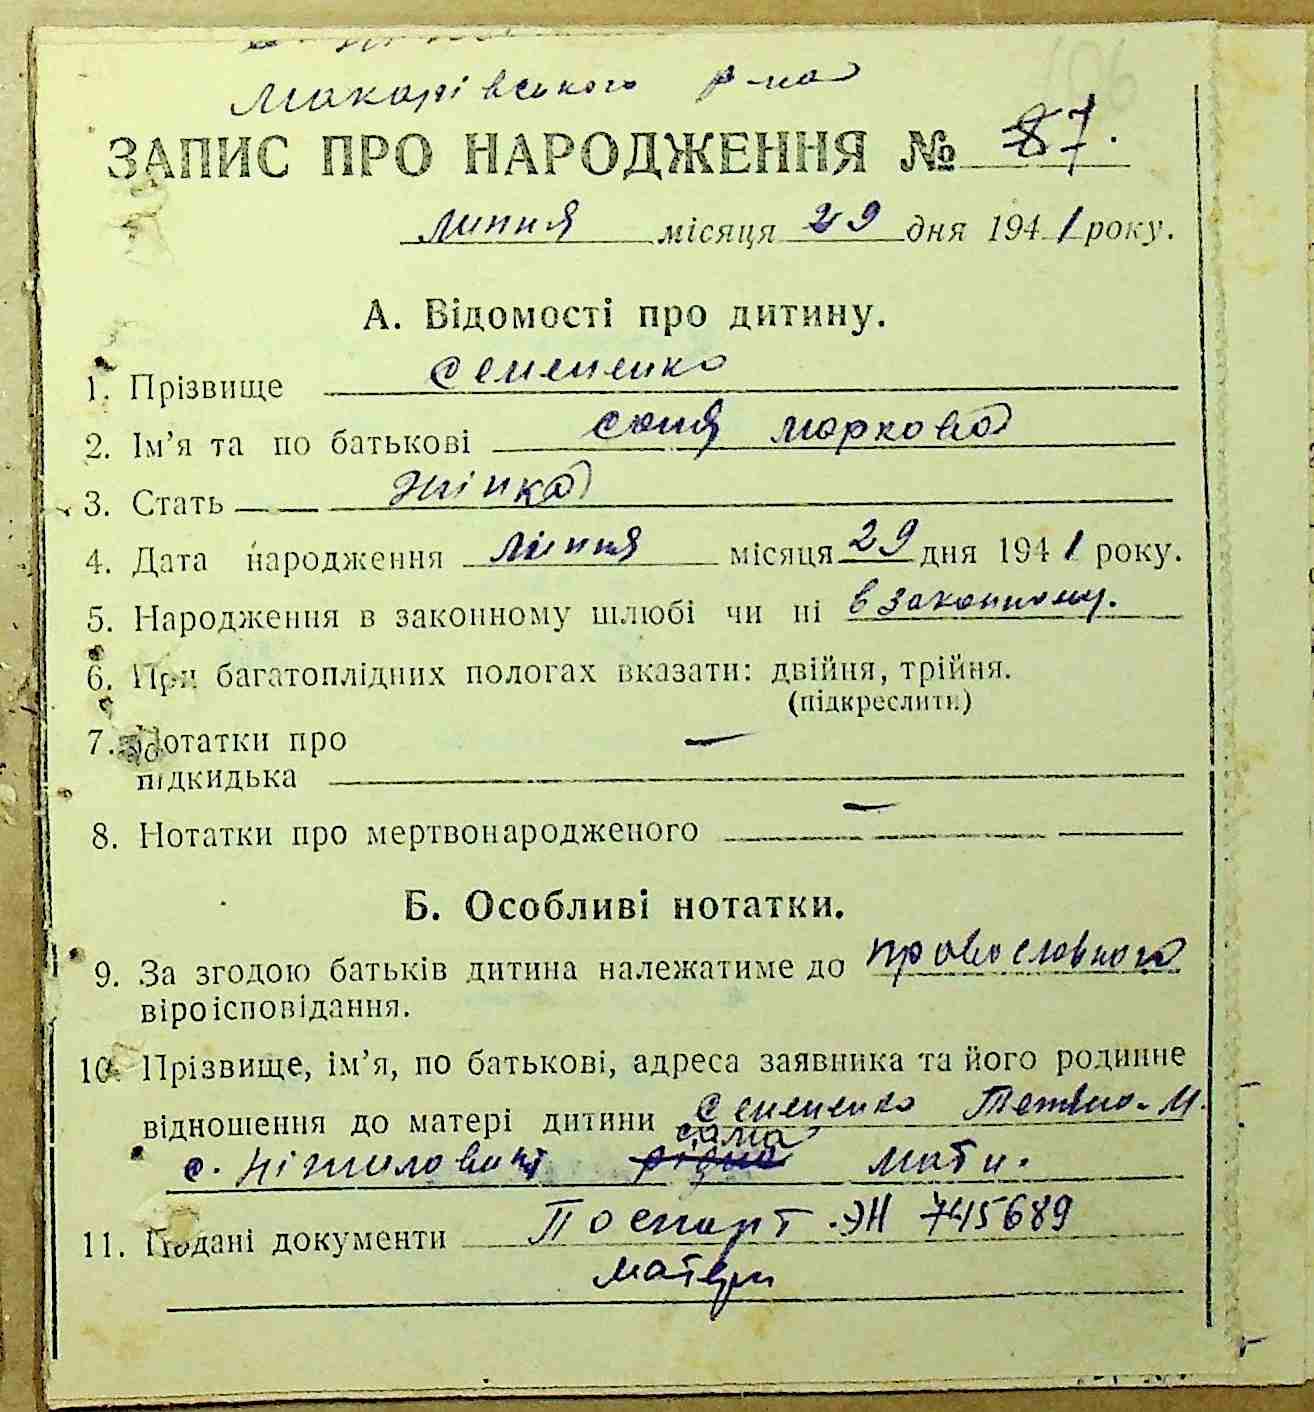 Макарівського р-на
ЗАПИС ПРО НАРОДЖЕННЯ № 87.
липня місяця 29 дня 1941 року.
А. Відомості про дитину.
1. Прізвище Семененко
2. Ім’я та по батькові Соня Маркова
3. Стать жінка
4. Дата народження липня місяця 29 дня 1941 року.
5. Народження в законному шлюбі чи ні в законному.
6. При багатоплідних пологах вказати: двійня, трійня.
(підкреслити)
7. Нотатки про —
підкидька
8. Нотатки про мертвонародженого —
Б. Особливі нотатки.
9. За згодою батьків дитина належатиме до православного
віроісповідання.
10. Прізвище, ім’я, по батькові, адреса заявника та його родинне
відношення до матері дитини Семененко Тетяна М.
сама
с. Ніжиловичі рідна мати.
11. Подані документи Паспорт ЭН 745689
матери